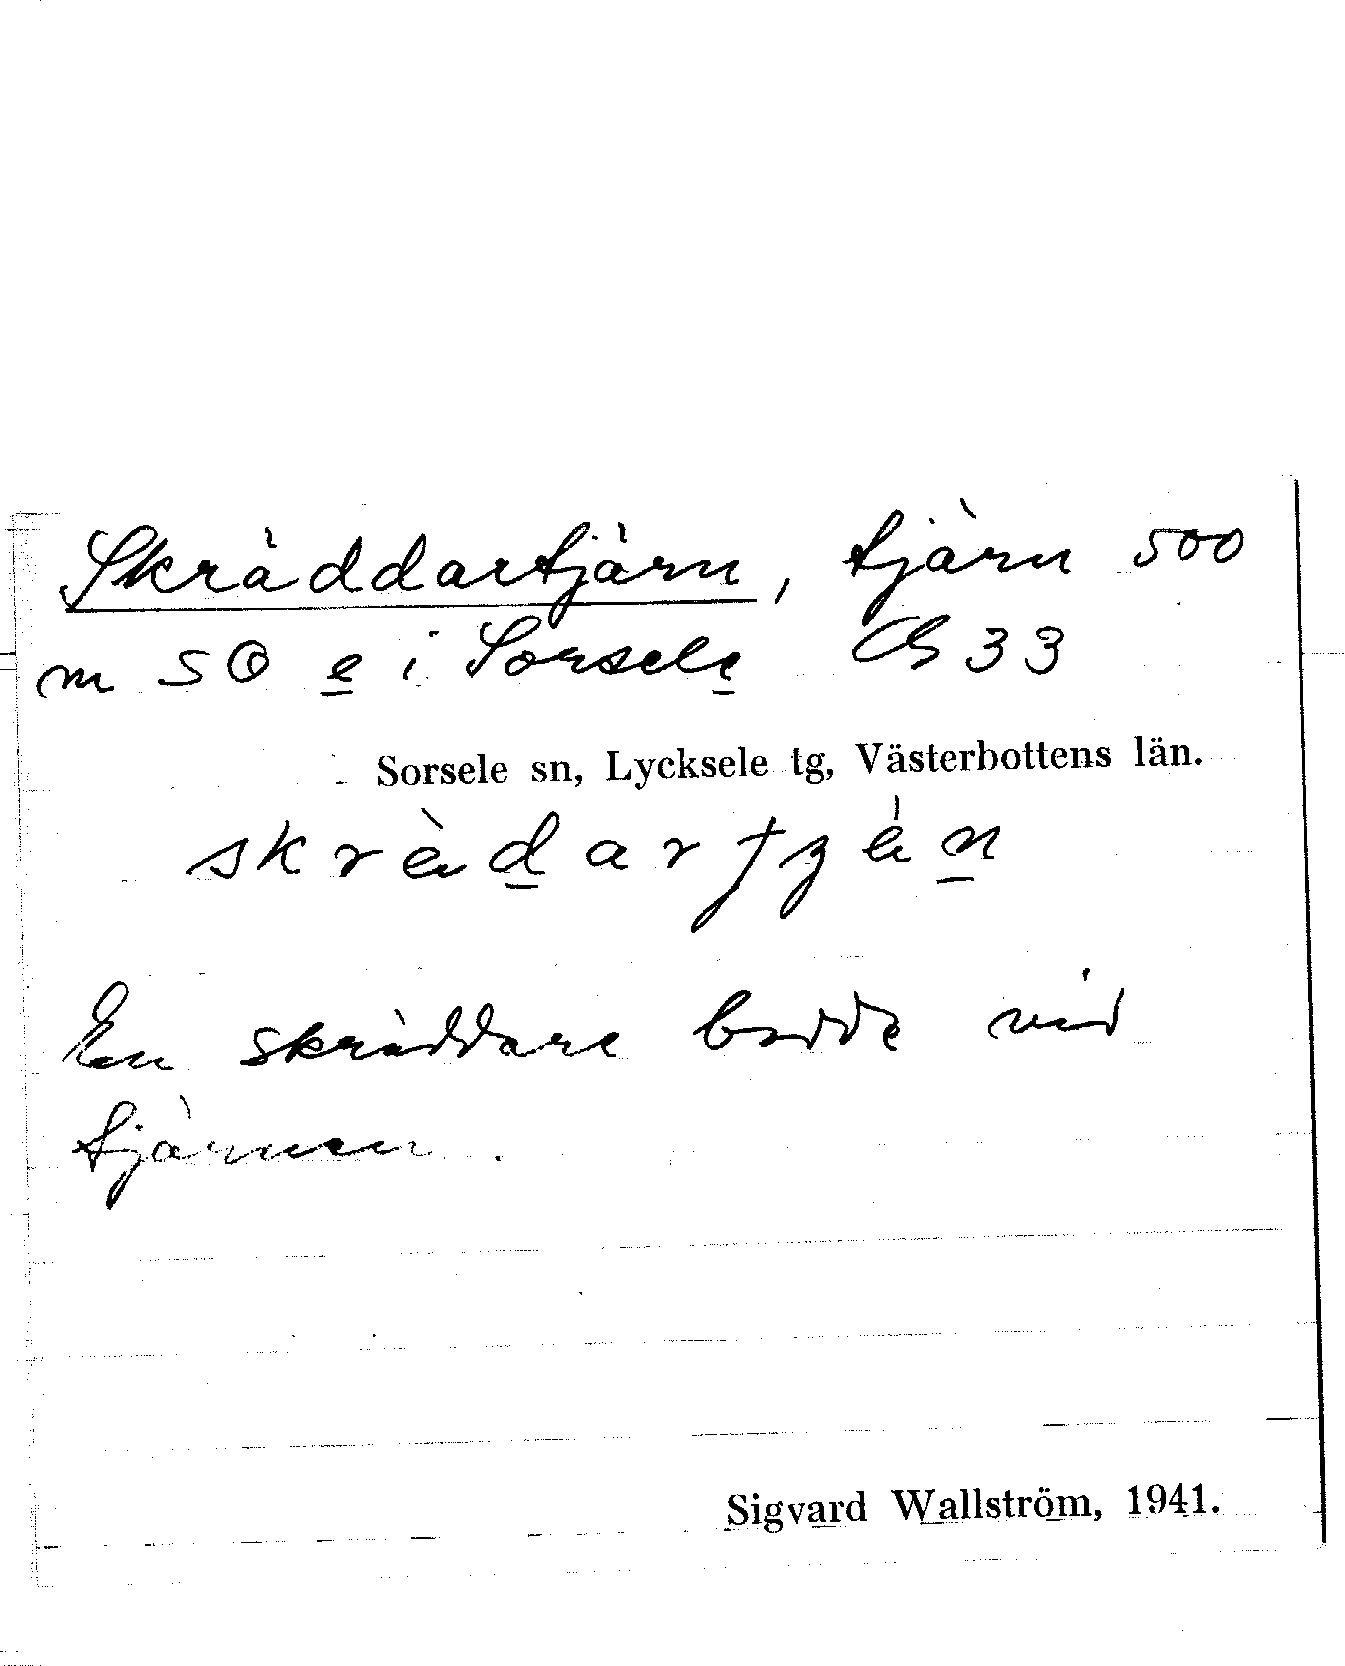 Skräddartjärn, tjärn 500
m SO e i Sorsele Ch 33
Sorsele sn, Lycksele tg, Västerbottens län.
En skräddare bodde vid
tjärnen.
Sigvard Wallström, 1941.